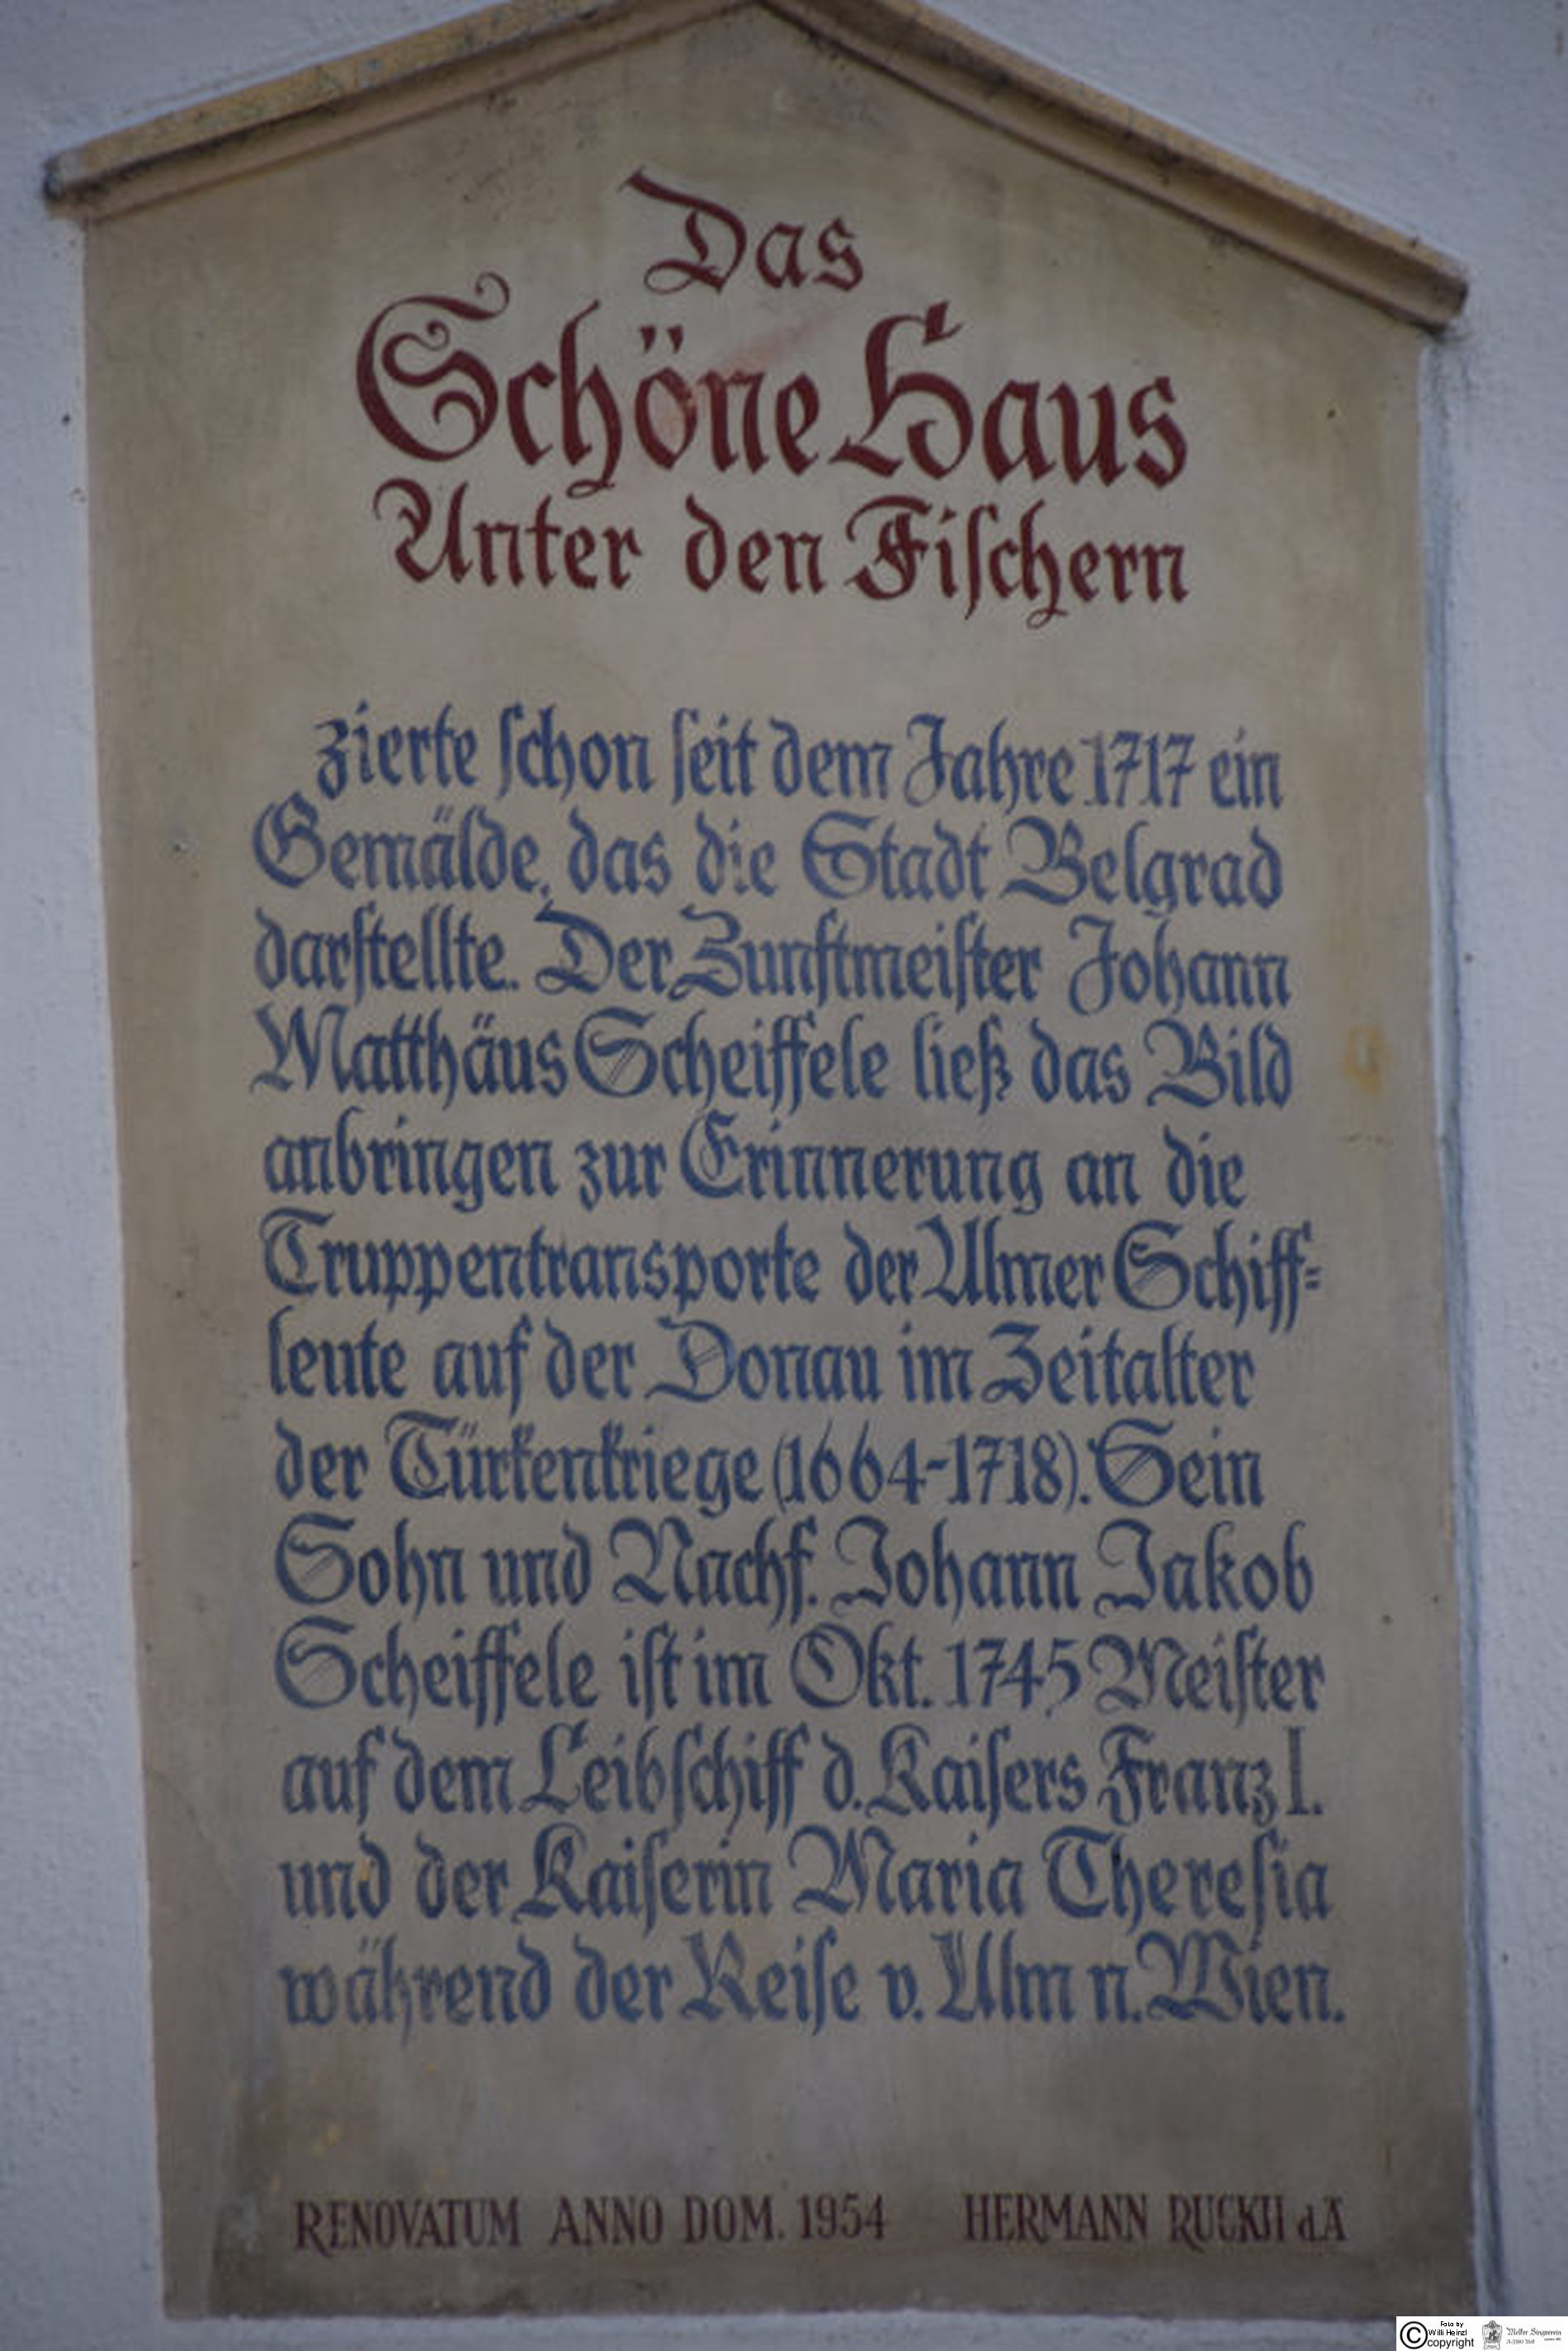 Das
Schöne Haus
Unter den Fischern
zierte schon seit dem Jahre 1717 ein
Gemälde, das die Stadt Belgrad
darstellte. Der Zunftmeister Johann
Matthäus Scheiffele ließ das Bild
anbringen zur Erinnerung an die
Truppentransporte der Ulmer Schiff=
leute auf der Donau im Zeitalter
der Türkenkriege (1664-1718). Sein
Sohn und Nachf. Johann Jakob
Scheiffele ist im Okt. 1745 Meister
auf dem Leibschiff d. Kaisers Franz I.
und der Kaiserin Maria Theresia
während der Reise v. Ulm n. Wien.
RENOVATUM ANNO DOM. 1954 HERMANN RUCKH d.Ä
© Foto by
Willi Heinzl
copyright
Melker Singverein